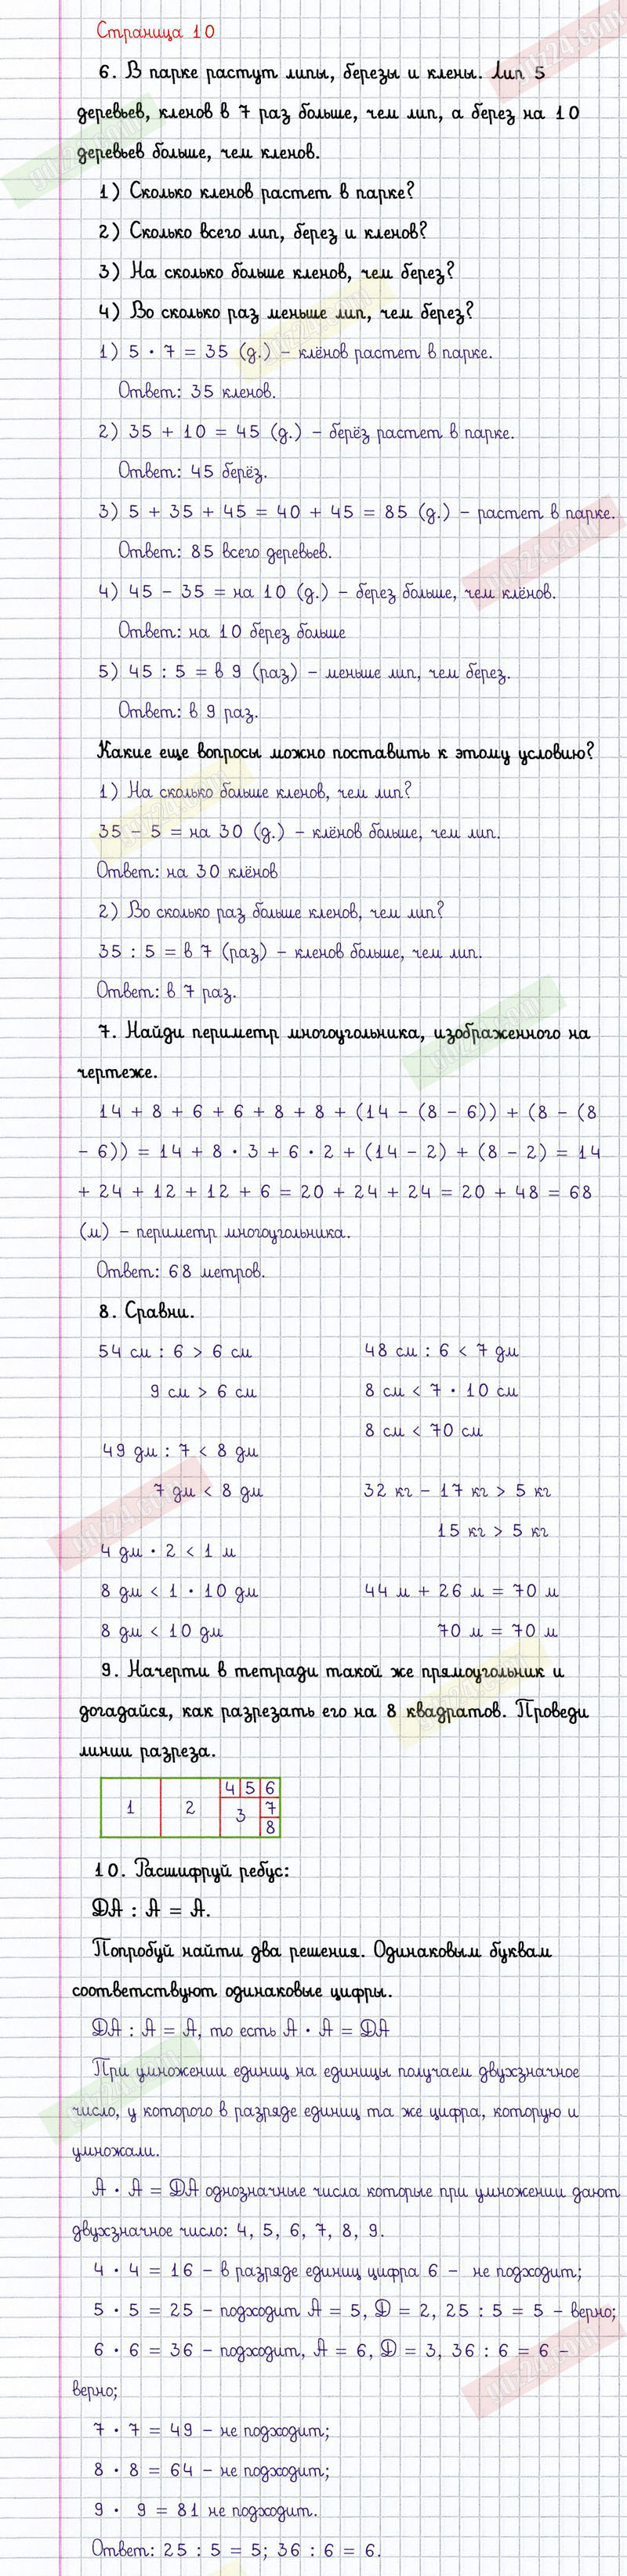 Страница 10
6. В парке растут липы, березы и клены. Лип 5
деревьев, кленов в 7 раз больше, чем лип, а берез на 10
деревьев больше, чем кленов.
1) Сколько кленов растет в парке?
2) Сколько всего лип, берез и кленов?
3) На сколько больше кленов, чем берез?
4) Во сколько раз меньше лип, чем берез?
1) 5 · 7 = 35 (д.) – клёнов растет в парке.
Ответ: 35 кленов.
2) 35 + 10 = 45 (д.) – берёз растет в парке.
Ответ: 45 берёз.
3) 5 + 35 + 45 = 40 + 45 = 85 (д.) – растет в парке.
Ответ: 85 всего деревьев.
4) 45 – 35 = на 10 (д.) – берез больше, чем клёнов.
Ответ: на 10 берез больше
5) 45 : 5 = в 9 (раз) – меньше лип, чем берез.
Ответ: в 9 раз.
Какие еще вопросы можно поставить к этому условию?
1) На сколько больше кленов, чем лип?
35 – 5 = на 30 (д.) – клёнов больше, чем лип.
Ответ: на 30 клёнов
2) Во сколько раз больше кленов, чем лип?
35 : 5 = в 7 (раз) – кленов больше, чем лип.
Ответ: в 7 раз.
7. Найди периметр многоугольника, изображенного на
чертеже.
14 + 8 + 6 + 6 + 8 + 8 + (14 – (8 – 6)) + (8 – (8
– 6)) = 14 + 8 · 3 + 6 · 2 + (14 – 2) + (8 – 2) = 14
+ 24 + 12 + 12 + 6 = 20 + 24 + 24 = 20 + 48 = 68
(м) – периметр многоугольника.
Ответ: 68 метров.
8. Сравни.
54 см : 6 > 6 см 48 см : 6 < 7 дм
9 см > 6 см 8 см < 7 · 10 см
8 см < 70 см
49 дм : 7 < 8 дм
7 дм < 8 дм 32 кг – 17 кг > 5 кг
15 кг > 5 кг
4 дм · 2 < 1 м
8 дм < 1 · 10 дм 44 м + 26 м = 70 м
8 дм < 10 дм 70 м = 70 м
9. Начерти в тетради такой же прямоугольник и
догадайся, как разрезать его на 8 квадратов. Проведи
линии разреза.
4 5 6
1 2 3 7
8
10. Расшифруй ребус:
ДА : А = А.
Попробуй найти два решения. Одинаковым буквам
соответствуют одинаковые цифры.
ДА : А = А, то есть А · А = ДА
При умножении единиц на единицы получаем двухзначное
число, у которого в разряде единиц та же цифра, которую и
умножали.
А · А = ДА однозначные числа которые при умножении дают
двухзначное число: 4, 5, 6, 7, 8, 9.
4 · 4 = 16 – в разряде единиц цифра 6 – не подходит;
5 · 5 = 25 – подходит А = 5, Д = 2, 25 : 5 = 5 – верно;
6 · 6 = 36 – подходит, А = 6, Д = 3, 36 : 6 = 6 –
верно;
7 · 7 = 49 – не подходит;
8 · 8 = 64 – не подходит;
9 · 9 = 81 не подходит.
Ответ: 25 : 5 = 5; 36 : 6 = 6.